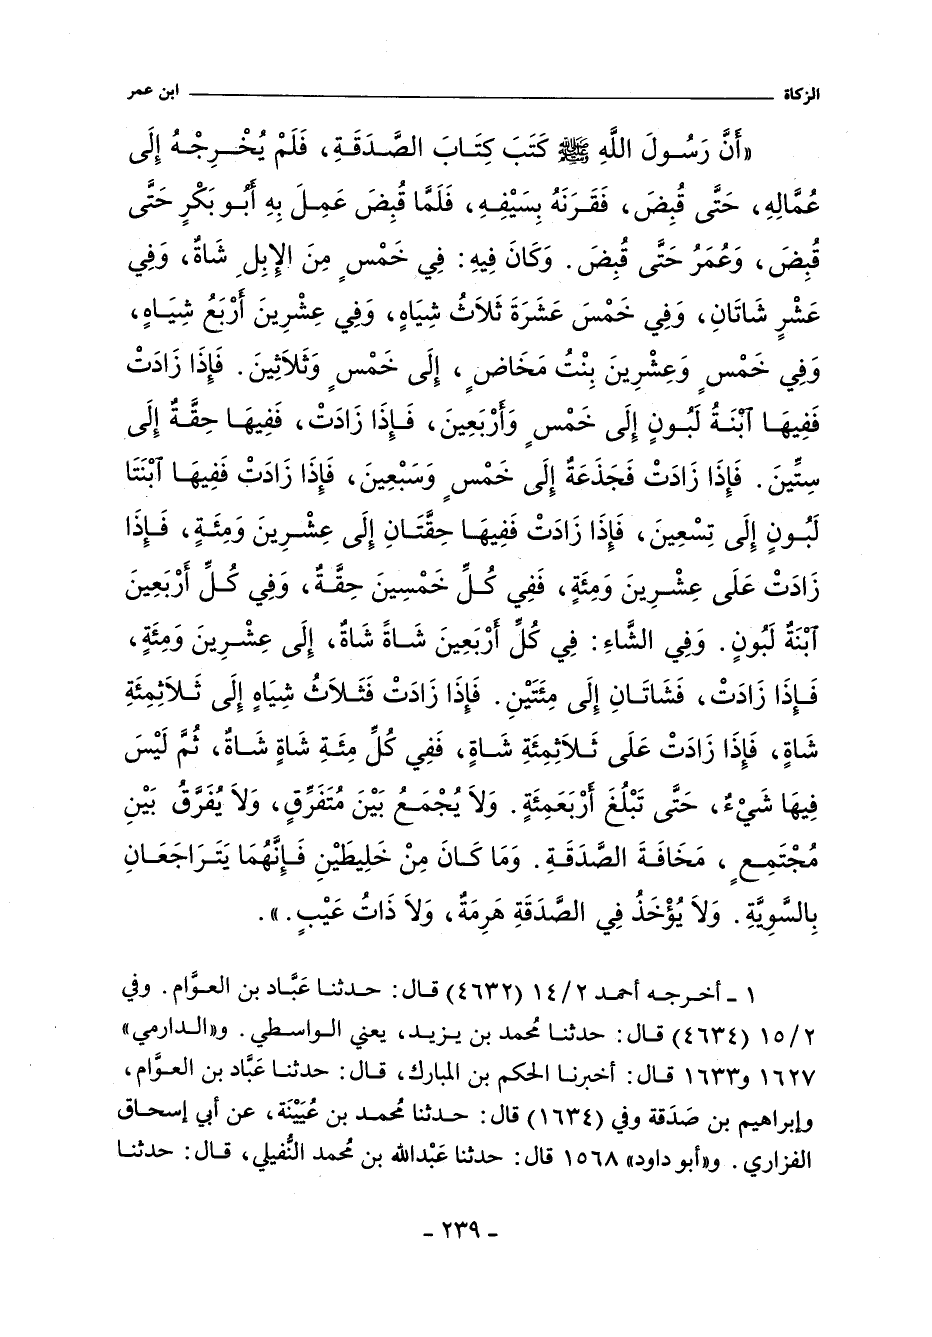 الزكاة ــــــــــــــــــــــــــــــــ ابن عمر
«أَنَّ رَسُولَ اللَّهِ ﷺ كَتَبَ كِتَابَ الصَّدَقَةِ، فَلَمْ يُخْرِجْهُ إِلَى
عُمَّالِهِ، حَتَّى قُبِضَ، فَقَرَنَهُ بِسَيْفِهِ، فَلَمَّا قُبِضَ عَمِلَ بِهِ أَبُو بَكْرٍ حَتَّى
قُبِضَ، وَعُمَرُ حَتَّى قُبِضَ. وَكَانَ فِيهِ: فِي خَمْسٍ مِنَ الإِبِلِ شَاةٌ، وَفِي
عَشْرٍ شَاتَانِ، وَفِي خَمْسَ عَشَرَةَ ثَلاَثُ شِيَاهٍ، وَفِي عِشْرِينَ أَرْبَعُ شِيَاهٍ،
وَفِي خَمْسٍ وَعِشْرِينَ بِنْتُ مَخَاضٍ، إِلَى خَمْسٍ وَثَلاَثِينَ. فَإِذَا زَادَتْ
فَفِيهَا ٱبْنَةُ لَبُونٍ إِلَى خَمْسٍ وَأَرْبَعِينَ، فَإِذَا زَادَتْ، فَفِيهَا حِقَّةٌ إِلَى
سِتِّينَ. فَإِذَا زَادَتْ فَجَذَعَةٌ إِلَى خَمْسٍ وَسَبْعِينَ، فَإِذَا زَادَتْ فَفِيهَا ٱبْنَتَا
لَبُونٍ إِلَى تِسْعِينَ، فَإِذَا زَادَتْ فَفِيهَا حِقَّتَانِ إِلَى عِشْرِينَ وَمِئَةٍ، فَإِذَا
زَادَتْ عَلَى عِشْرِينَ وَمِئَةٍ، فَفِي كُلِّ خَمْسِينَ حِقَّةٌ، وَفِي كُلِّ أَرْبَعِينَ
ٱبْنَةُ لَبُونٍ. وَفِي الشَّاءِ: فِي كُلِّ أَرْبَعِينَ شَاةً شَاةٌ، إِلَى عِشْرِينَ وَمِئَةٍ،
فَإِذَا زَادَتْ، فَشَاتَانِ إِلَى مِئَتَيْنِ. فَإِذَا زَادَتْ فَثَلاَثُ شِيَاهٍ إِلَى ثَلاَثِمِئَةِ
شَاةٍ، فَإِذَا زَادَتْ عَلَى ثَلاَثِمِئَةِ شَاةٍ، فَفِي كُلِّ مِئَةِ شَاةٍ شَاةٌ، ثُمَّ لَيْسَ
فِيهَا شَيْءٌ، حَتَّى تَبْلُغَ أَرْبَعَمِئَةٍ. وَلاَ يُجْمَعُ بَيْنَ مُتَفَرِّقٍ، وَلاَ يُفَرَّقُ بَيْنَ
مُجْتَمِعٍ، مَخَافَةَ الصَّدَقَةِ. وَمَا كَانَ مِنْ خَلِيطَيْنِ فَإِنَّهُمَا يَتَرَاجَعَانِ
بِالسَّوِيَّةِ. وَلاَ يُؤْخَذُ فِي الصَّدَقَةِ هَرِمَةٌ، وَلاَ ذَاتُ عَيْبٍ.».
١ - أخرجه أحمد ١٤/٢ (٤٦٣٢) قال: حدثنا عَبَّاد بن العوَّام. وفي
١٥/٢ (٤٦٣٤) قال: حدثنا مُحمد بن يزيد، يعني الواسطي. و«الدارمي»
١٦٢٧ و١٦٣٣ قال: أخبرنا الحكم بن المبارك، قال: حدثنا عَبَّاد بن العوَّام،
وإبراهيم بن صَدَقة وفي (١٦٣٤) قال: حدثنا مُحمد بن عُيَيْنَة، عن أبي إسحاق
الفزاري. و«أبو داود» ١٥٦٨ قال: حدثنا عَبْدالله بن مُحمد النُّفيلي، قال: حدثنا
- ٢٣٩ -